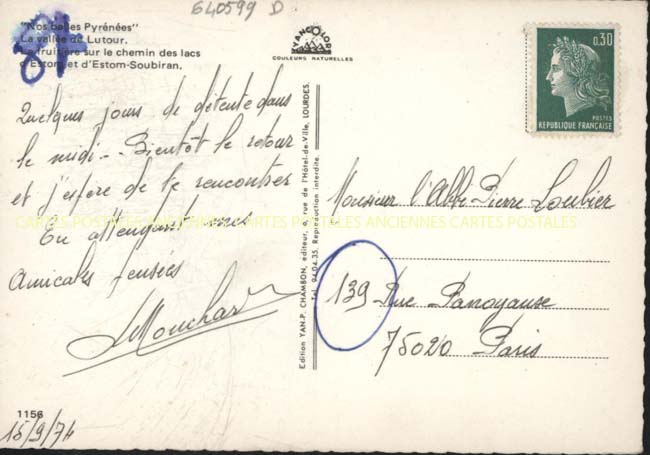 640599 D
"Nos belles Pyrénées"
La vallée de Lutour.
La fruitière sur le chemin des lacs
d'Estom et d'Estom-Soubiran.
YAN COLOR
COULEURS NATURELLES
0,30
POSTES
REPUBLIQUE FRANÇAISE
Quelques jours de détente dans
le midi - Bientôt le retour
et j'espère de te rencontrer
En attendant mes
Amicales pensées
Mouchar
Edition YAN.P. CHAMBON, éditeur, 9, rue de l'Hôtel-de-Ville, LOURDES.
Tél. 94-04-35. Reproduction interdite.
Monsieur l'Abbé Pierre Loubier
139 Rue Panoyause
75020 Paris
CARTES POSTALES ANCIENNES CARTES POSTALES ANCIENNES CARTES POSTALES
1156
15/9/74